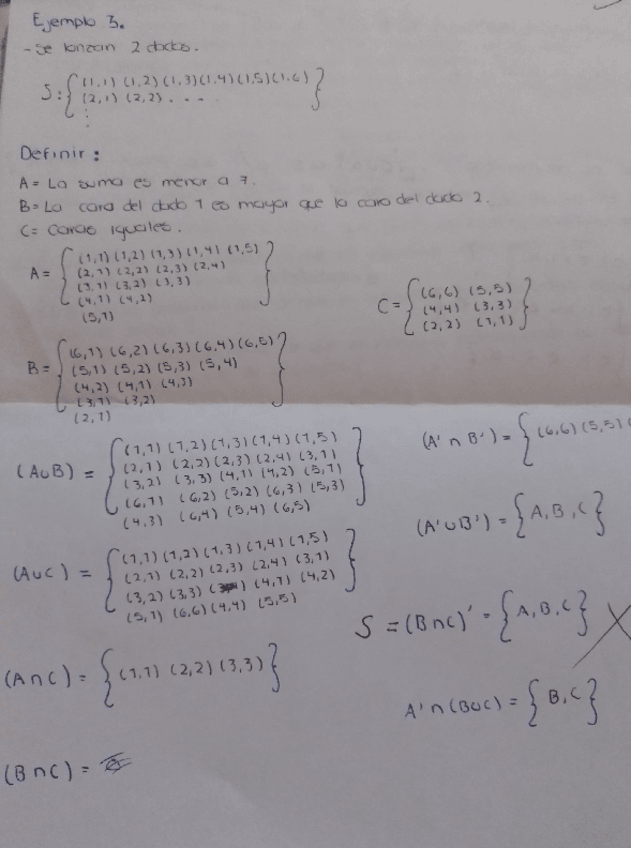 Ejemplo 3.
- Se lanzan 2 dados.
S:{(1,1) (1,2) (1,3) (1,4) (1,5) (1,6)
(2,1) (2,2) . . . .
⋮ }
Definir:
A = La suma es menor a 7.
B = La cara del dado 1 es mayor que la cara del dado 2.
C = Caras iguales.
A = {(1,1) (1,2) (1,3) (1,4) (1,5)
(2,1) (2,2) (2,3) (2,4)
(3,1) (3,2) (3,3)
(4,1) (4,2)
(5,1) }
C = {(6,6) (5,5)
(4,4) (3,3)
(2,2) (1,1)}
B = {(6,1) (6,2) (6,3) (6,4) (6,5)
(5,1) (5,2) (5,3) (5,4)
(4,2) (4,1) (4,3)
(3,1) (3,2)
(2,1) }
(A∪B) = {(1,1) (1,2) (1,3) (1,4) (1,5)
(2,1) (2,2) (2,3) (2,4) (3,1)
(3,2) (3,3) (4,1) (4,2) (5,1)
(6,1) (6,2) (5,2) (6,3) (5,3)
(4,3) (6,4) (5,4) (6,5) }
(A∪C) = {(1,1) (1,2) (1,3) (1,4) (1,5)
(2,1) (2,2) (2,3) (2,4) (3,1)
(3,2) (3,3) (4,1) (4,2)
(5,1) (6,6) (4,4) (5,5) }
(A∩C) = {(1,1) (2,2) (3,3)}
(B∩C) =
(A'∩B') = {(6,6) (5,5) (
(A'∪B') = {A, B, C}
S = (B∩C)' = {A, B, C}
A'∩(B∪C) = {B, C}